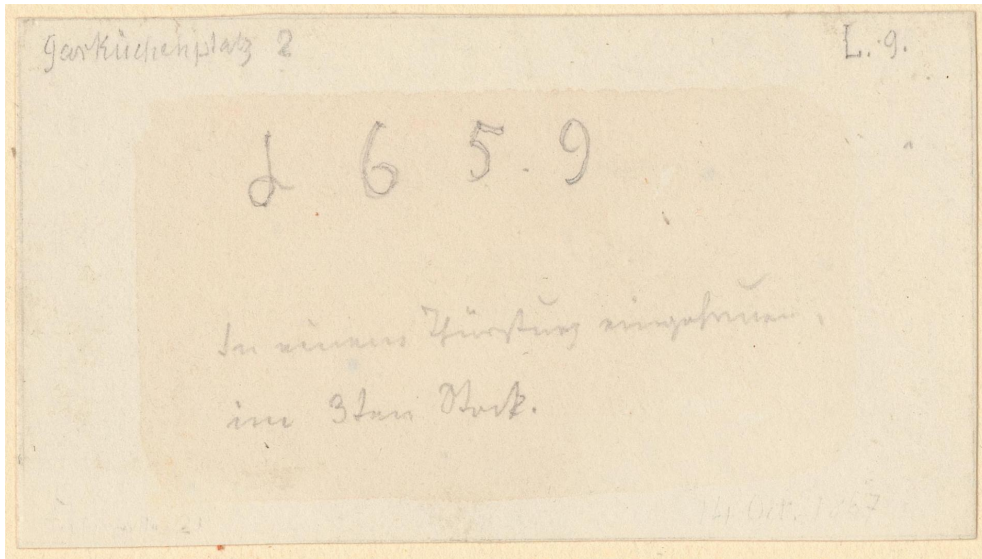 Garküchenplatz 2
L. 9.
1 6 5 9
In einem Thürsturz eingehauen,
im 3ten Stock.
14 Okt.